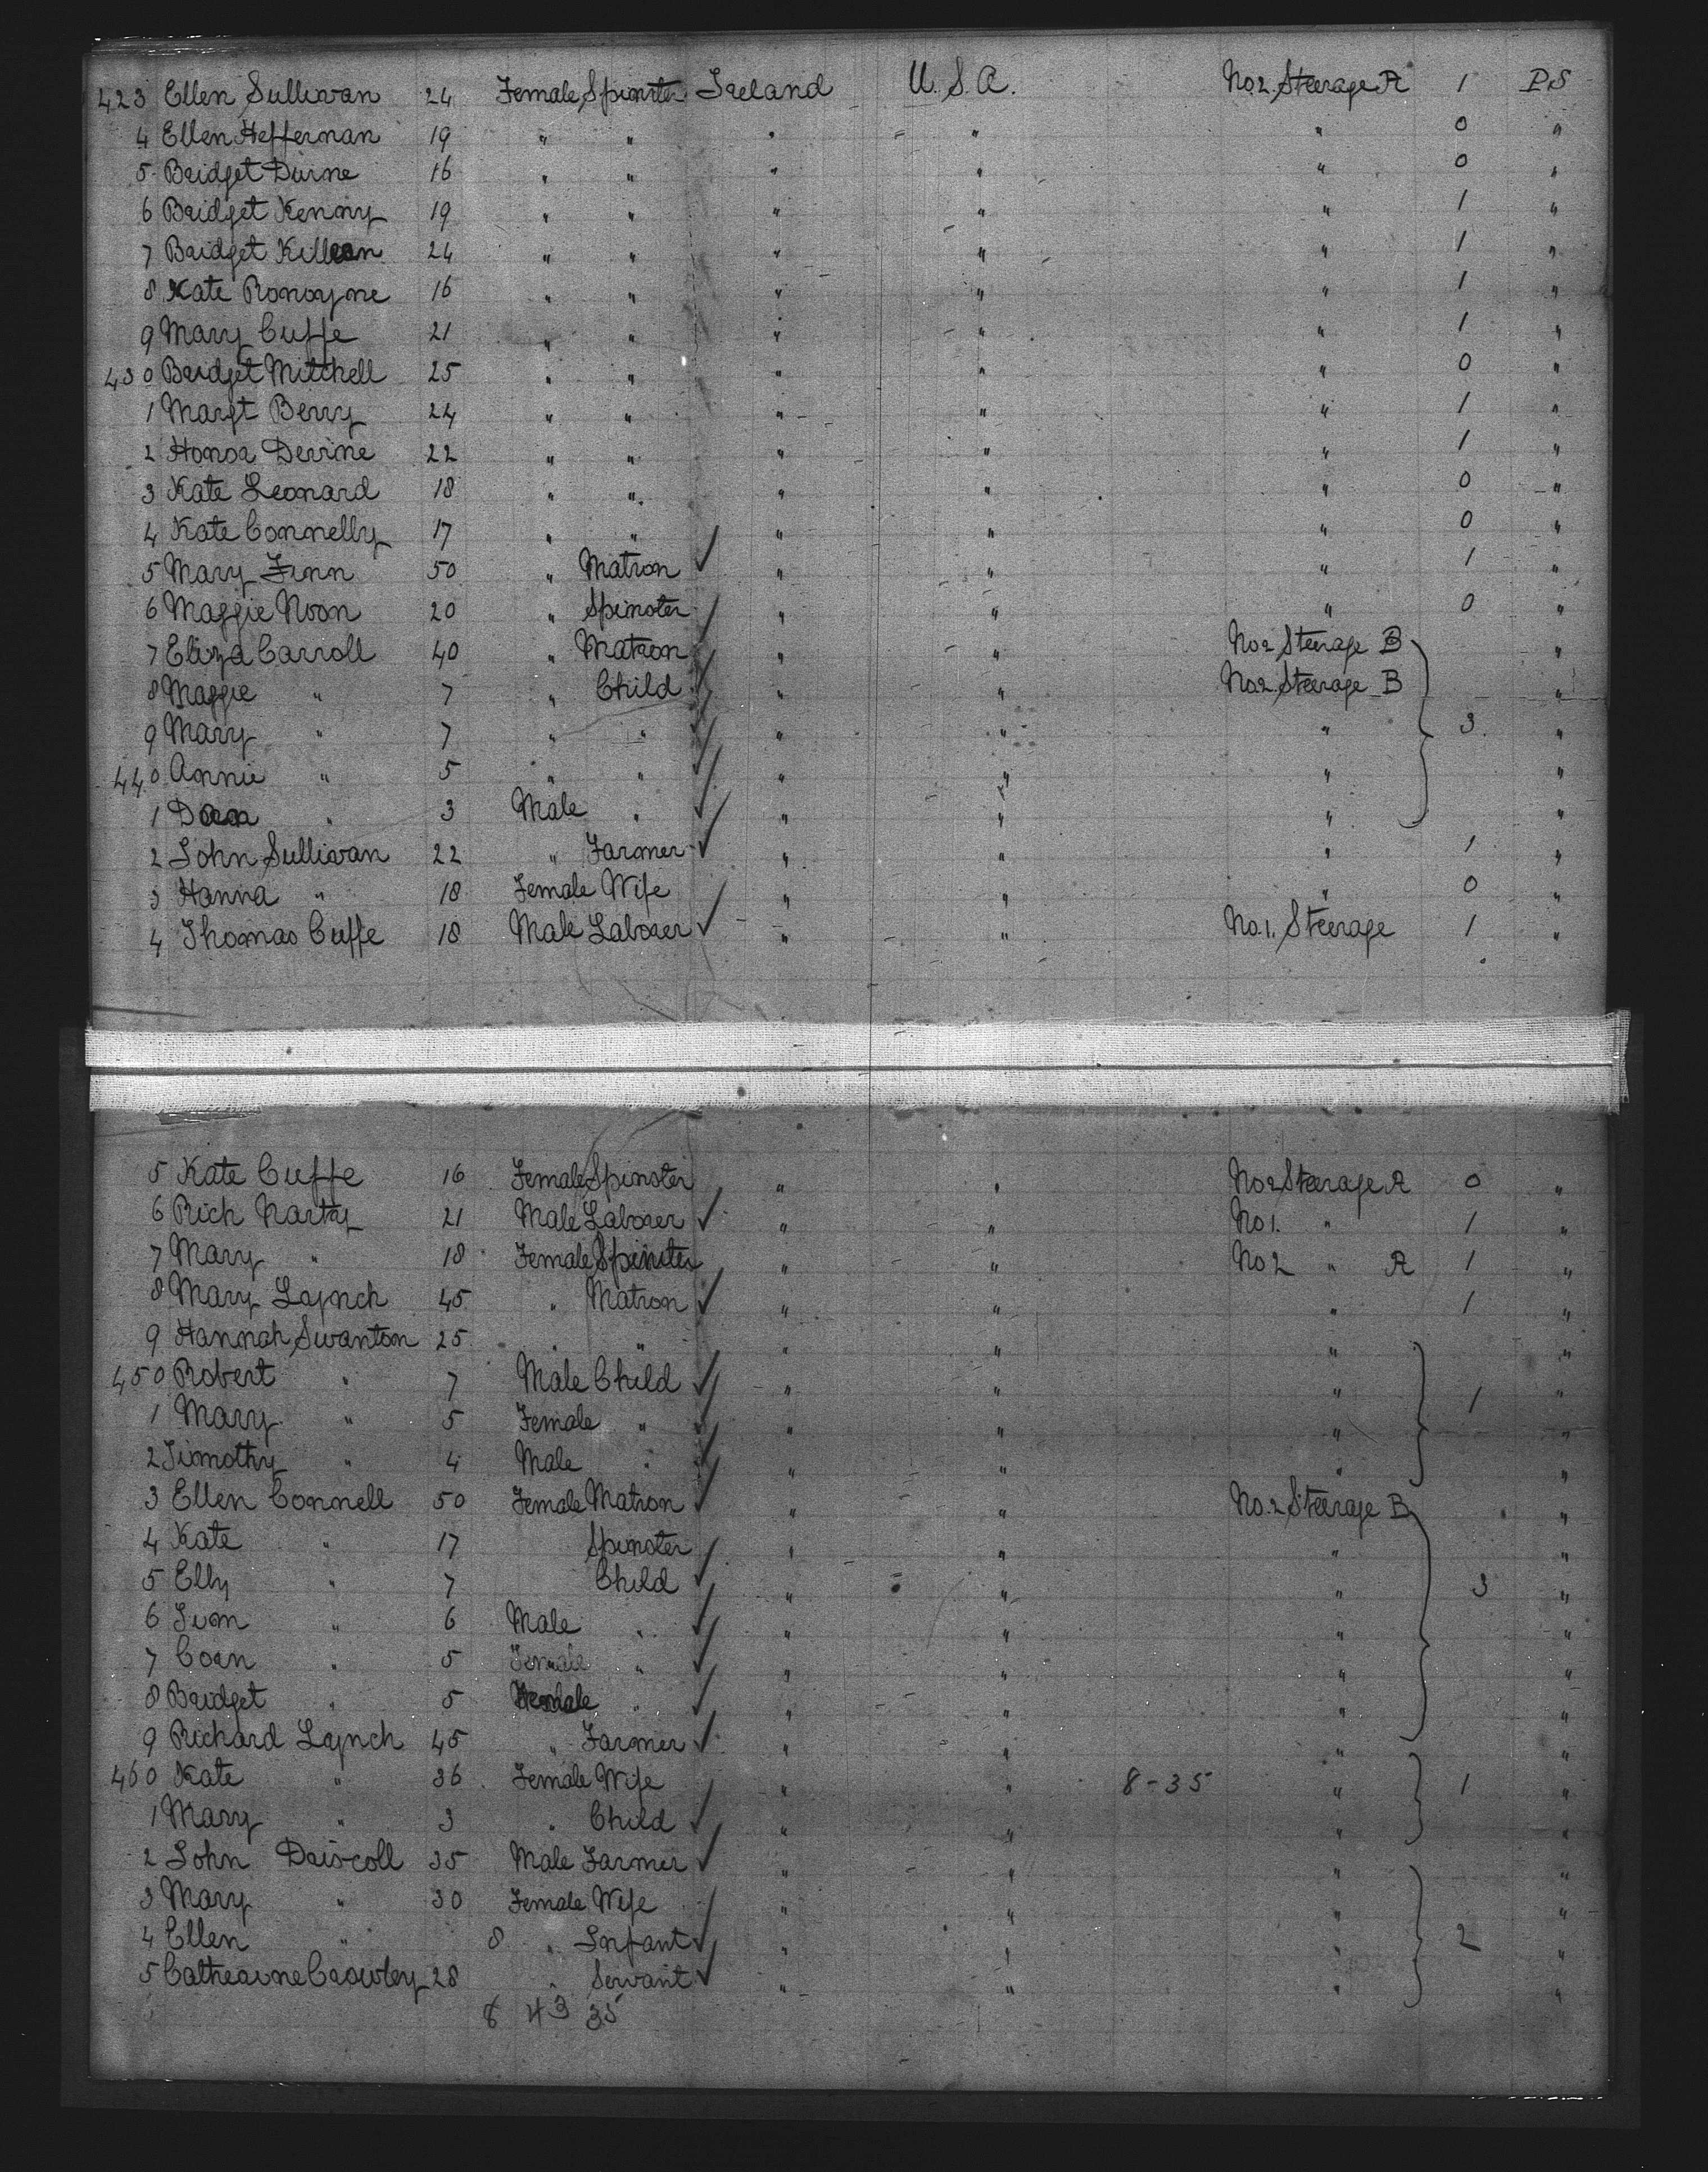 423 Ellen Sullivan 24 Female Spinster Ireland U.S.A. No2. Steerage A 1 PS
4 Ellen Heffernan 19 " " " " " 0 "
5 Bridget Dirne 16 " " " " " 0 "
6 Bridget Kenny 19 " " " " " 1 "
7 Bridget Killean 24 " " " " " 1 "
8 Kate Ronoyne 16 " " " " " 1 "
9 Mary Cuffe 21 " " " " " 1 "
430 Bridget Mitchell 25 " " " " " 0 "
1 Margt Berry 24 " " " " " 1 "
2 Honor Devine 22 " " " " " 1 "
3 Kate Leonard 18 " " " " " 0 "
4 Kate Connelly 17 " " " " " 0 "
5 Mary Finn 50 " Matron ✓ " " " 1 "
6 Maggie Noon 20 " Spinster ✓ " " " 0 "
7 Eliza Carroll 40 " Matron ✓ " " No2 Steerage B "
8 Maggie " 7 " Child ✓ " " No2. Steerage B "
9 Mary " 7 " " ✓ " " " 3 "
440 Annie " 5 " " ✓ " " " "
1 " 3 Male " ✓ " " " "
2 John Sullivan 22 " Farmer ✓ " " " 1 "
3 Hanna " 18 Female Wife " " " 0 "
4 Thomas Cuffe 18 Male Laborer ✓ " " No.1. Steerage 1 "
5 Kate Cuffe 16 Female Spinster " " No2 Steerage A 0 "
6 Rich Narty 21 Male Laborer ✓ " " No1. " 1 "
7 Mary " 18 Female Spinster " " No2 " A 1 "
8 Mary Lynch 45 " Matron ✓ " " " 1 "
9 Hannah Swanton 25 " " " " " "
450 Robert " 7 Male Child ✓ " " " 1 "
1 Mary " 5 Female " ✓ " " " "
2 Timothy " 4 Male " ✓ " " " "
3 Ellen Connell 50 Female Matron ✓ " " No.2 Steerage B "
4 Kate " 17 Spinster ✓ " " " "
5 Elly " 7 Child ✓ " " " 3 "
6 " 6 Male " ✓ " " " "
7 " 5 Female " ✓ " " " "
8 Bridget " 5 " ✓ " " " "
9 Richard Lynch 45 " Farmer ✓ " " " "
460 Kate " 36 Female Wife " " 8-35 " 1 "
1 Mary " 3 " Child ✓ " " " "
2 John Driscoll 35 Male Farmer ✓ " " " "
3 Mary " 30 Female Wife " " " "
4 Ellen " 8 " Infant ✓ " " " 2 "
5 Cathearine Crowley 28 " Servant ✓ " " " "
8 43 35